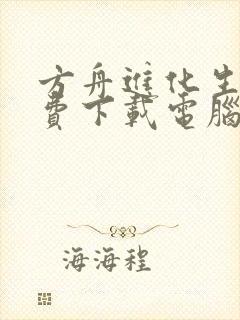 方舟進化生
費下載電腦
海海程